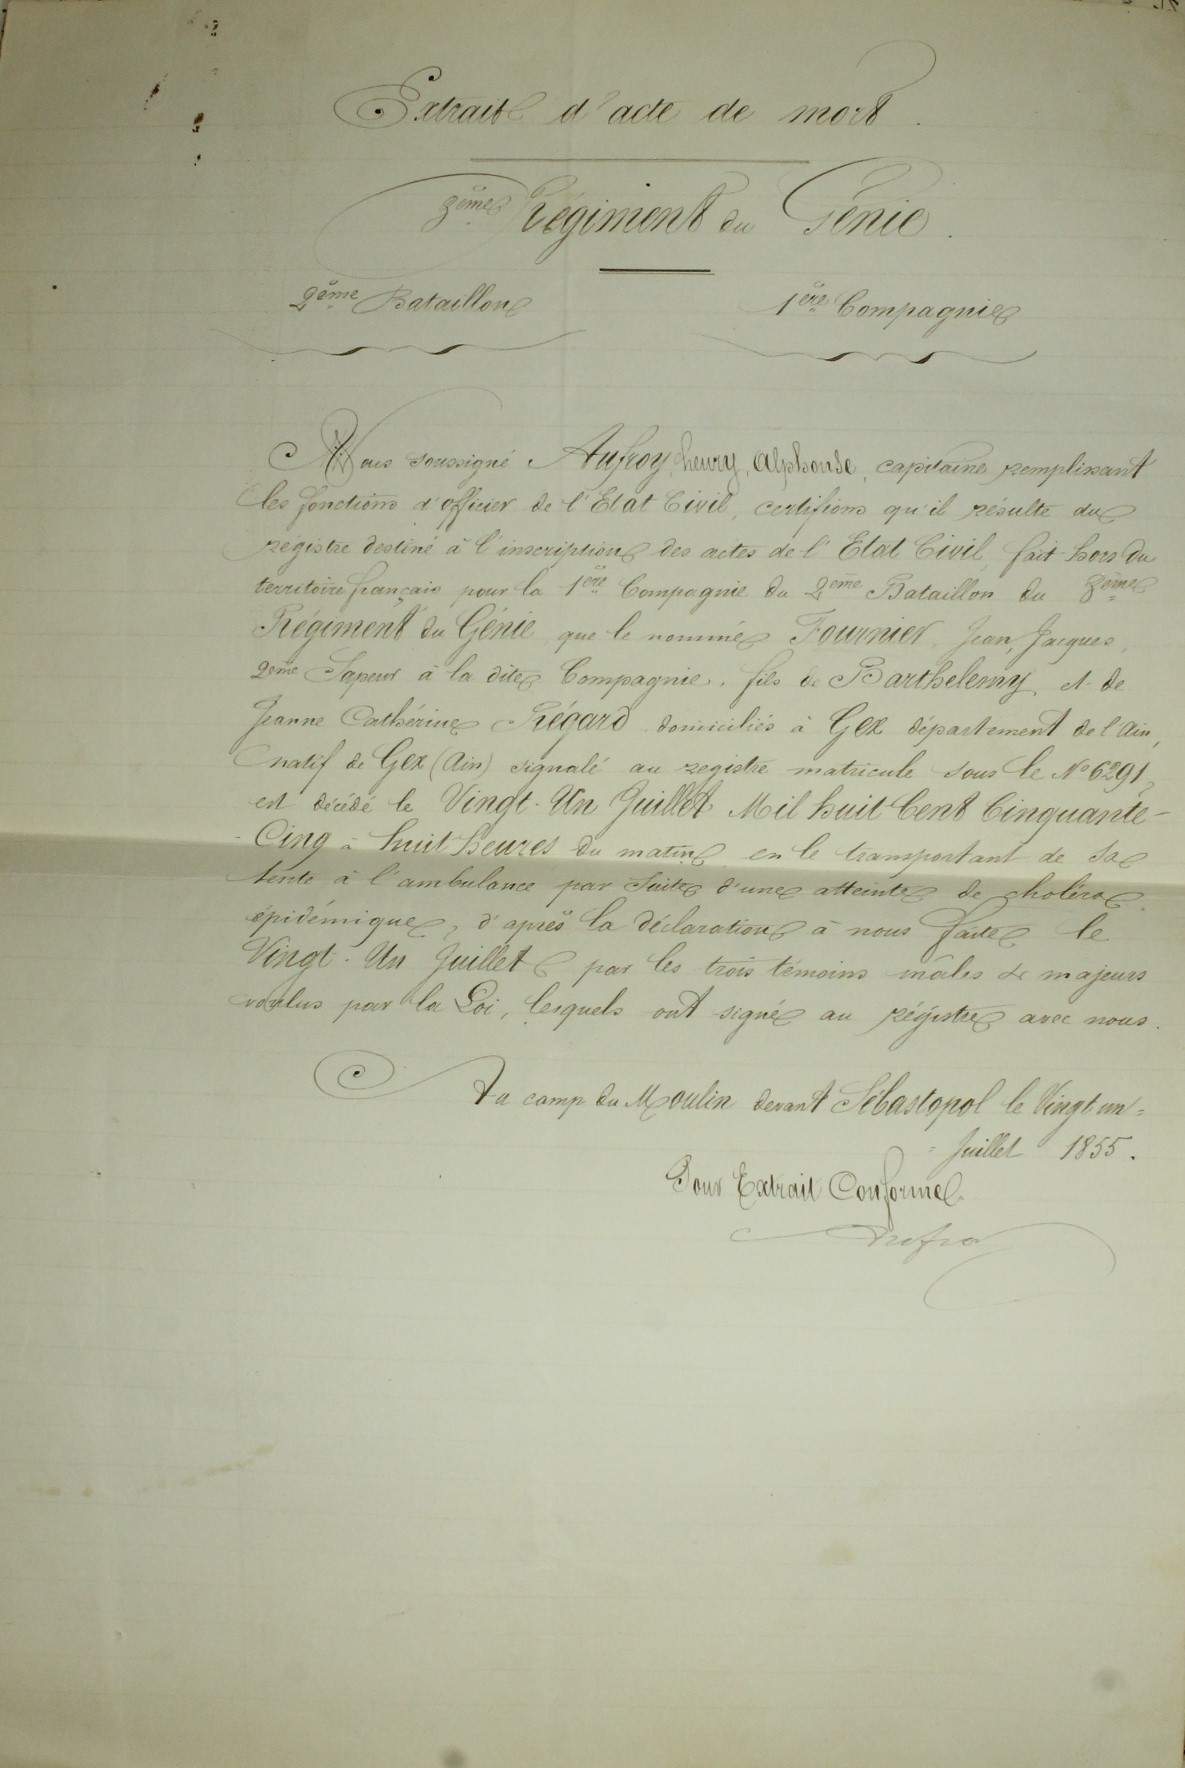 Extrait d'acte de mort.
3ème Régiment du Génie.
2ème Bataillon 1ère Compagnie
Nous soussigné Aufroy, henry, Alphonse, capitaine remplissant
les fonctions d'officier de l'Etat Civil, certifions qu'il résulte du
régistre destiné à l'inscription des actes de l'Etat Civil, fait hors du
territoire français pour la 1ère Compagnie du 2ème Bataillon du 3ème
Régiment du Génie que le nommé Fournier, Jean, Jacques,
2ème Sapeur à la dite Compagnie, fils de Barthelemy, et de
Jeanne Cathérine Régard domiciliés à Gex département de l'Ain,
natif de Gex (Ain) signalé au registre matricule sous le No 6291,
est décédé le Vingt-Un Juillet Mil huit Cent Cinquante-
Cinq à huit heures du matin en le transportant de sa
tente à l'ambulance par suite d'une atteinte de choléra
épidémique, d'après la déclaration à nous faite le
Vingt-Un Juillet par les trois témoins mâles & majeurs
voulus par la Loi, lesquels ont signé au régistre avec nous.
Au camp du Moulin devant Sébastopol le Vingt un=
=Juillet 1855.
Pour Extrait Conforme